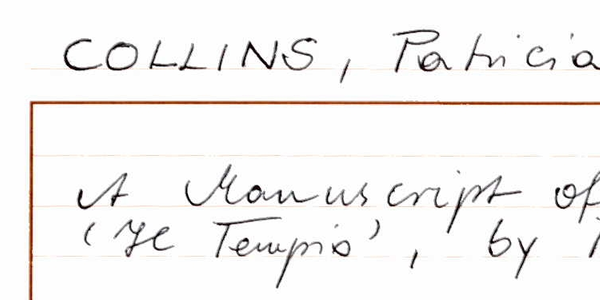 COLLINS, Patricia
A Manuscript of
'Il Tempio', by